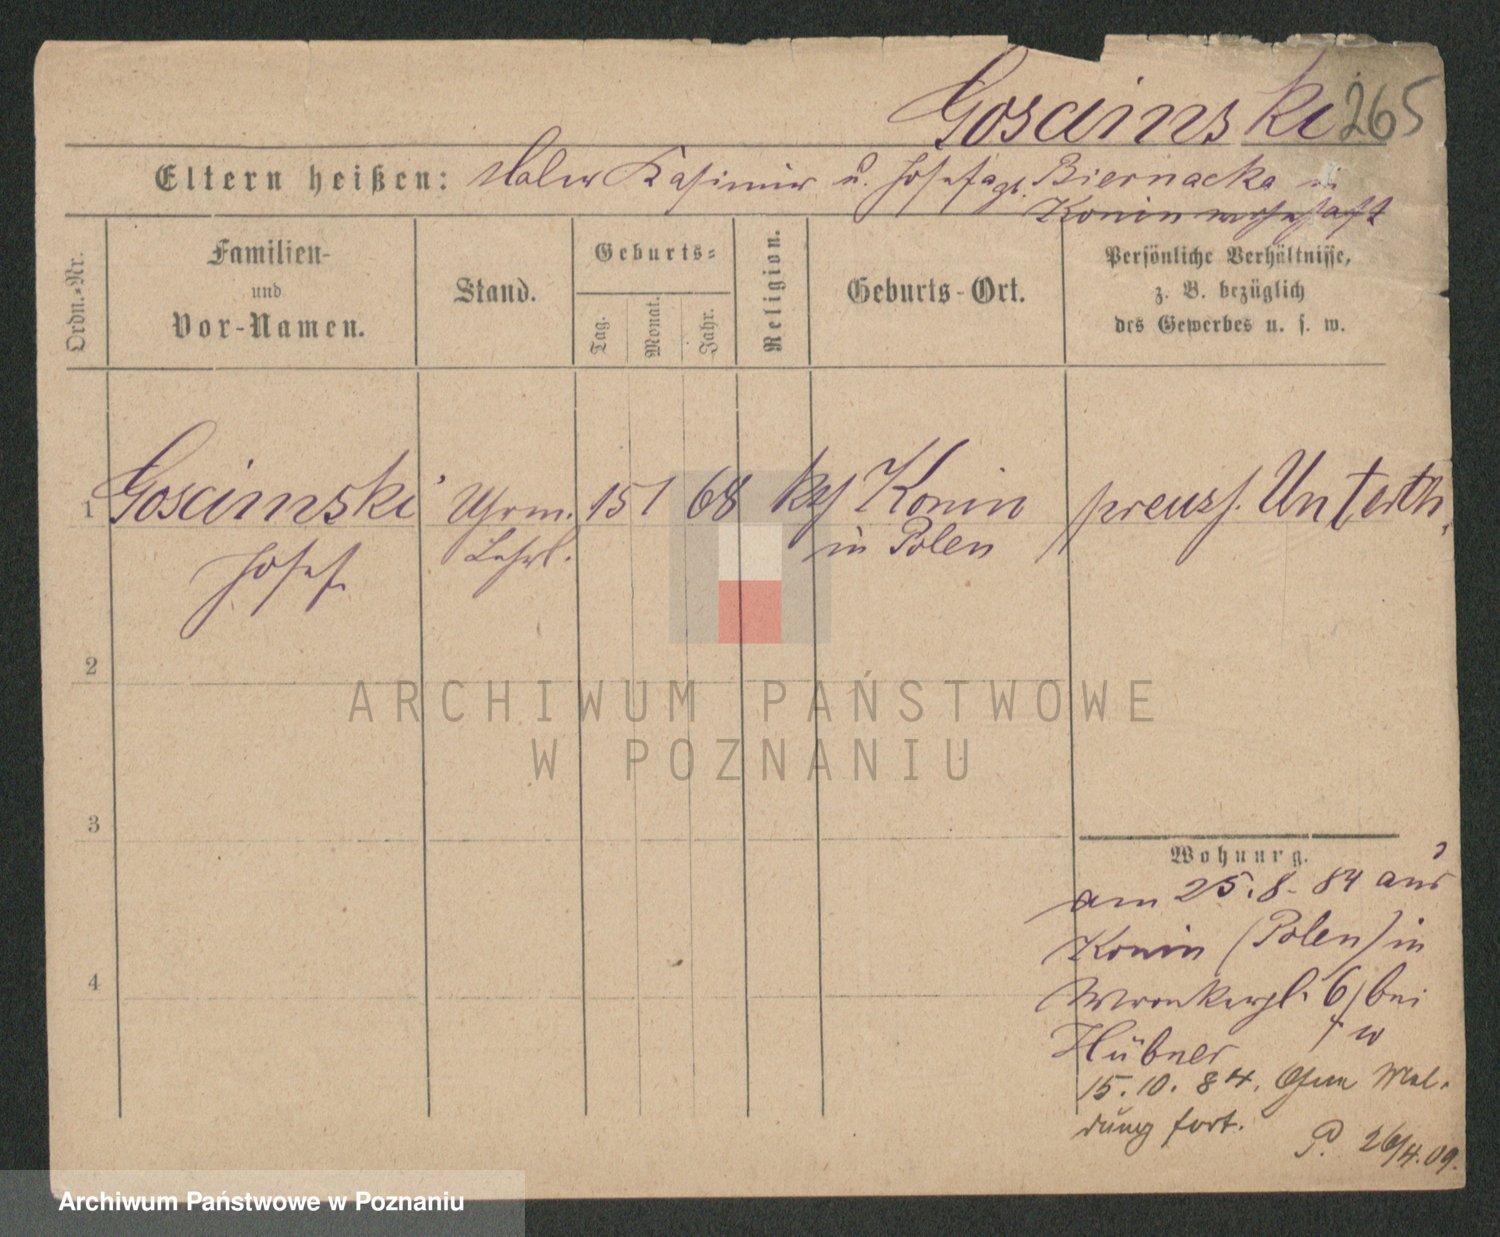 Goscimski 265
Eltern heißen: Maler Kasimir u. Josefa gb. Biernacka in
Konin wohnhaft
Ordn.-Nr.
Familien-
und
Vor-Namen.
Stand.
Geburts-
Tag.
Monat.
Jahr.
Religion.
Geburts-Ort.
Persönliche Verhältnisse,
z. B. bezüglich
des Gewerbes u. s. w.
1 Goscimski Uhrm. 15 1 68 kth Konin preuss. Unterth.
Josef Lehrl. in Polen
2
ARCHIWUM PAŃSTWOWE
W POZNANIU
3
Wohnung.
am 25. 8. 84 aus
Konin (Polen) in
4
Wronkerstr. 6 bei
Hübner
15. 10. 84. Ohne Mel-
dung fort.
P. 26/4. 09.
Archiwum Państwowe w Poznaniu